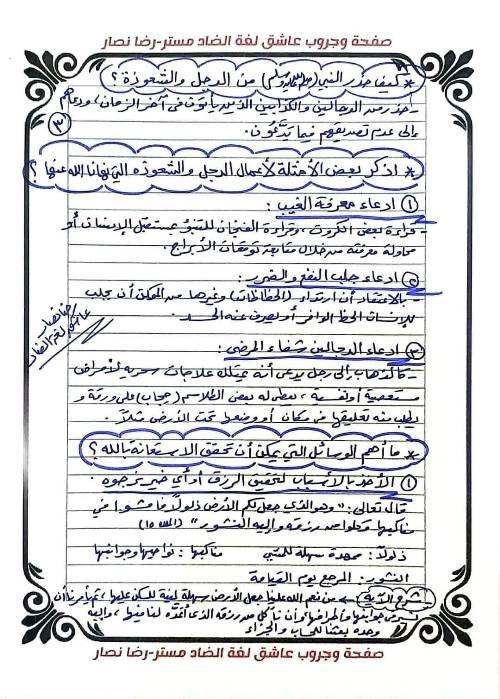 صفحة وجروب عاشق لغة الضاد مستر-رضا نصار
* كيف حذر النبي (صلى الله عليه وسلم) من الدجل والشعوذة ؟
- حذر من الدجالين والكذابين الذين يأتون فى آخر الزمان، ودعاهم
إلى عدم تصديقهم فيما يدَّعُون.
٣
* اذكر بعض الأمثلة لأعمال الدجل والشعوذة التي نهانا الله عنها ؟
① ادعاء معرفة الغيب :
- قراءة بعض الكروت، وقراءة الفنجان للتنبؤ بمستقبل الإنسان أو
محاولة معرفته من خلال متابعة توقعات الأبراج.
② ادعاء جلب النفع والضرر :
- بالاعتقاد أن ارتداء (الحظاظات) وغيرها من الممكن أن يجلب
للإنسان الحظ الوافر أو يصرف عنه الحسد.
رضا نصار
عاشق لغة الضاد
③ ادعاء الدجالين شفاء المرضى :
- كالذهاب إلى رجل يدعى أنه يمتلك علاجات سحرية لأمراض
مستعصية أو نفسية، يعطى له بعض الطلاسم (حجاب) على ورقة و
يطلب منه تعليقها فى مكان أو وضعها تحت الأرض مثلاً.
* ما أهم الوسائل التي يمكن أن تحقق الاستعانة بالله ؟
① الأخذ بالأسباب لتحقيق الرزق أو أي خير نرجوه.
قال تعالى : " هو الذي جعل لكم الأرض ذلولاً فامشوا في
مناكبها وكلوا من رزقه وإليه النشور " (الملك ١٥)
ذلولاً : ممهدة سهلة للمشي مناكبها : نواحيها وجوانبها
النشور : المرجع يوم القيامة
شرح الآية ← من نعم الله علينا جعل الأرض سهلة لينة للسكن عليها، ثم أمرنا أن
جوانبها وأطرافها، وأن نأكل من رزقه الذى أعده لنا منها، وإليه
وحده بعثنا للحساب والجزاء
صفحة وجروب عاشق لغة الضاد مستر-رضا نصار